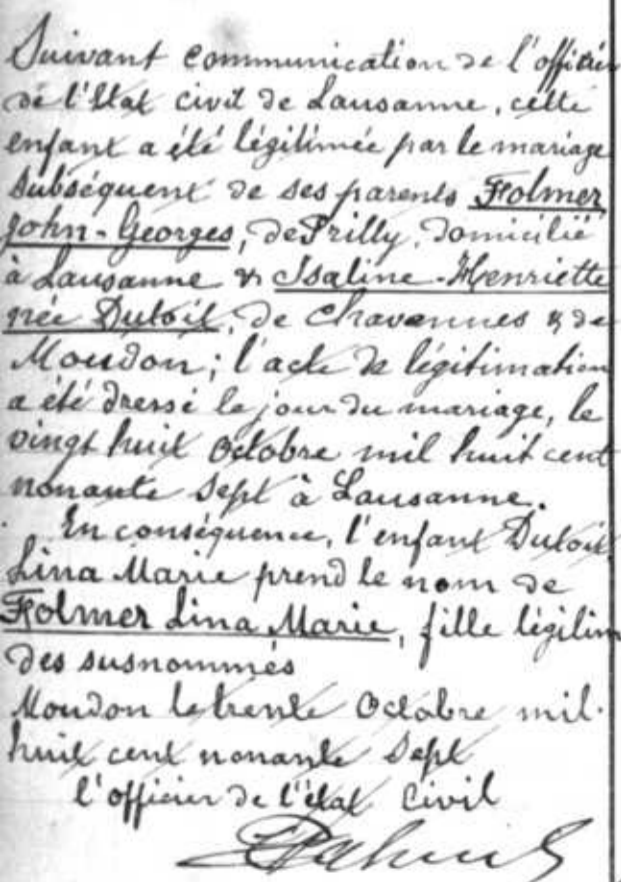 Suivant communication de l'officier
de l'Etat civil de Lausanne, cette
enfant a été légitimée par le mariage
subséquent de ses parents Folmer
John-Georges, de Prilly, domicilié
à Lausanne & Isaline-Henriette
née Dutoit, de Chavannes & de
Moudon; l'acte de légitimation
a été dressé le jour du mariage, le
vingt huit Octobre mil huit cent
nonante sept à Lausanne.
En conséquence, l'enfant Dutoit
Lina Marie prend le nom de
Folmer Lina Marie, fille légitim
des susnommés
Moudon le trente Octobre mil
huit cent nonante sept
l'officier de l'état civil